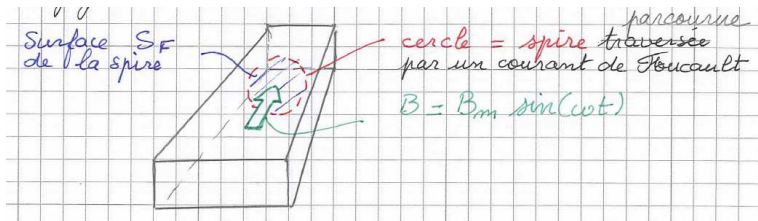 parcourue
Surface SF
de la spire
cercle = spire traversée
par un courant de Foucault
B = Bm sin(ωt)